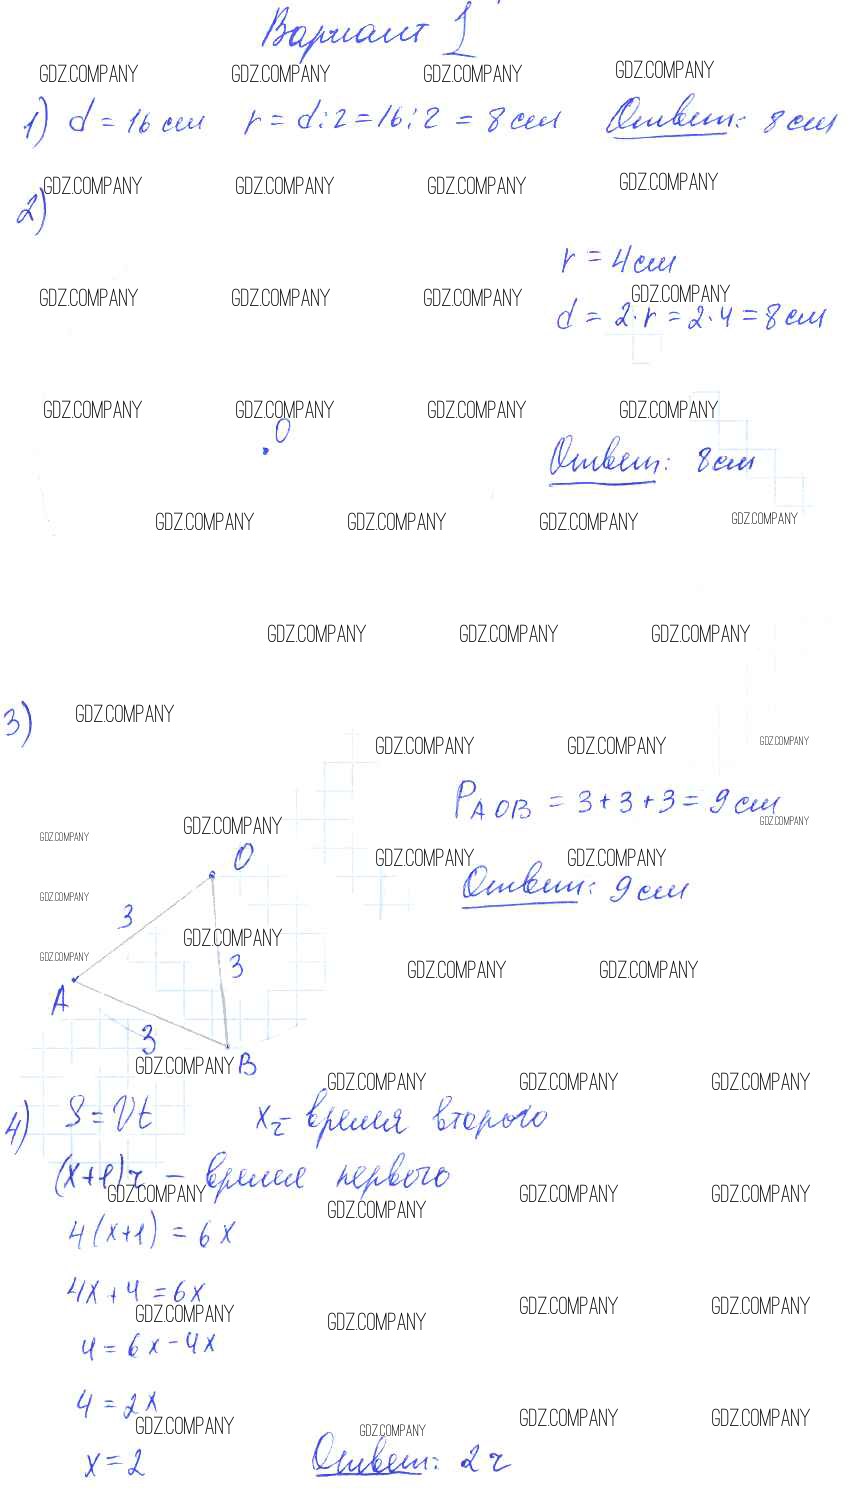 Вариант 1
GDZ.COMPANY GDZ.COMPANY GDZ.COMPANY GDZ.COMPANY
1) d = 16 см r = d:2 = 16:2 = 8 см Ответ: 8 см
GDZ.COMPANY GDZ.COMPANY GDZ.COMPANY GDZ.COMPANY
2)
r = 4 см
GDZ.COMPANY GDZ.COMPANY GDZ.COMPANY GDZ.COMPANY
d = 2·r = 2·4 = 8 см
GDZ.COMPANY GDZ.COMPANY GDZ.COMPANY GDZ.COMPANY
O
Ответ: 8 см
GDZ.COMPANY GDZ.COMPANY GDZ.COMPANY GDZ.COMPANY
GDZ.COMPANY GDZ.COMPANY GDZ.COMPANY
3) GDZ.COMPANY
GDZ.COMPANY GDZ.COMPANY GDZ.COMPANY
P AOB = 3+3+3 = 9 см
GDZ.COMPANY GDZ.COMPANY GDZ.COMPANY
O GDZ.COMPANY GDZ.COMPANY
GDZ.COMPANY Ответ: 9 см
3
GDZ.COMPANY 3
GDZ.COMPANY GDZ.COMPANY GDZ.COMPANY
A
3
GDZ.COMPANY B
GDZ.COMPANY GDZ.COMPANY GDZ.COMPANY
4) S = Vt x ч - время второго
(x+1) ч - время первого
GDZ.COMPANY GDZ.COMPANY GDZ.COMPANY GDZ.COMPANY
4(x+1) = 6x
4x+4 = 6x
GDZ.COMPANY GDZ.COMPANY GDZ.COMPANY GDZ.COMPANY
4 = 6x-4x
4 = 2x
GDZ.COMPANY GDZ.COMPANY GDZ.COMPANY GDZ.COMPANY
x = 2 Ответ: 2 ч